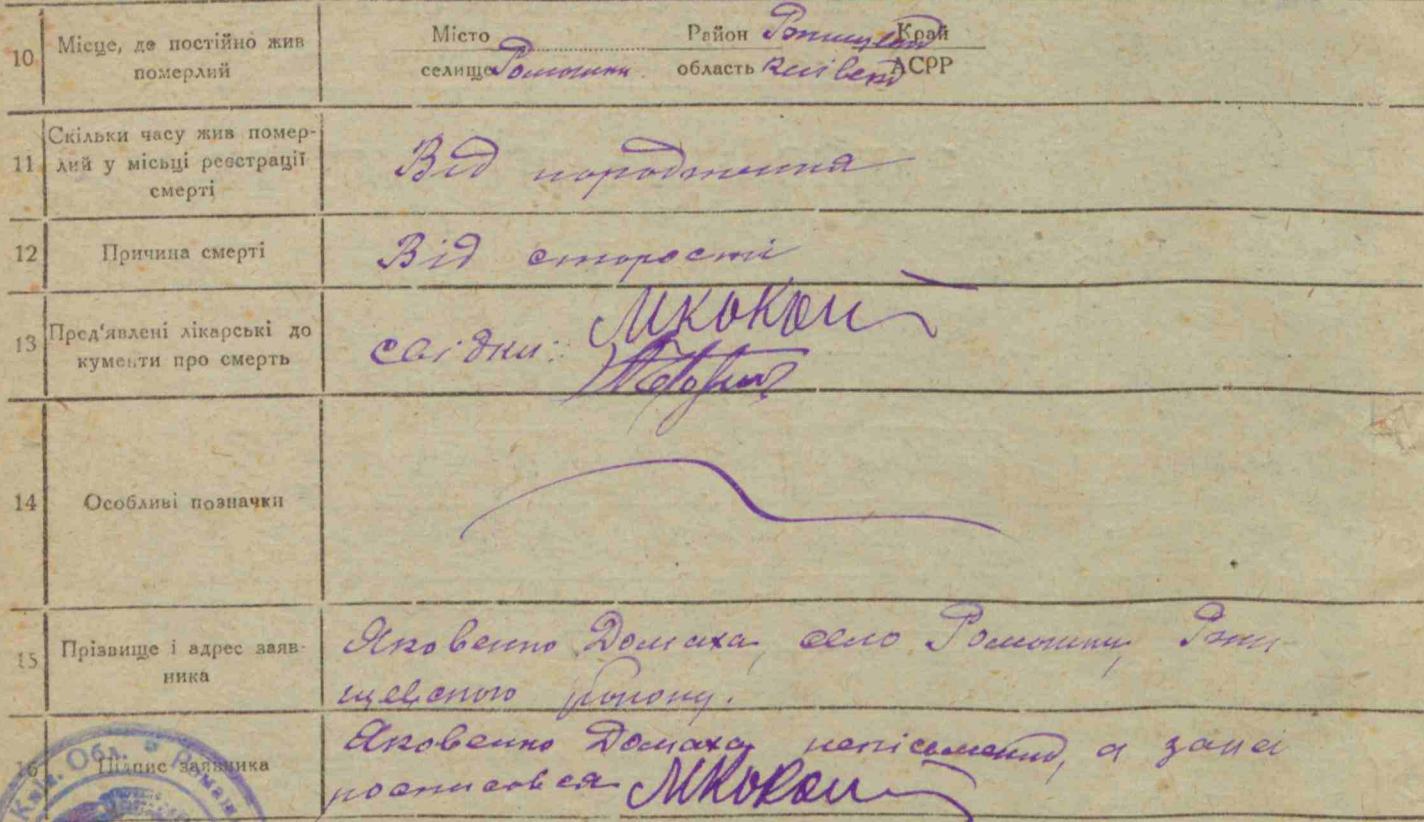 10 Місце, де постійно жив померлий
Місто Район Край
селище Ромашки область Київськ АСРР
11 Скільки часу жив помер-
лий у місьці реєстрації
смерті
Від народження
12 Причина смерті
Від старості
13 Пред'явлені лікарські до
кументи про смерть
Свідки:
14 Особливі позначки
15 Прізвище і адрес заяв-
ника
Яковенко Домаха, село Ромашки, Ржи-
щевского району.
16 Підпис заявника
Яковенко Домаха, неписьменна, а за неї
росписався
Київ. Обл. Ромаш